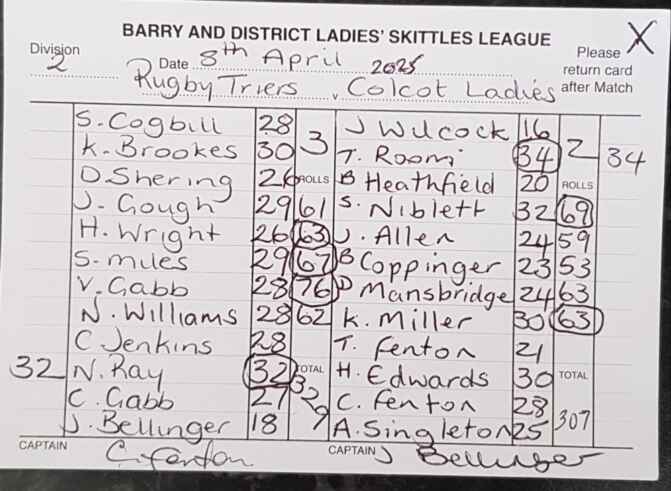 BARRY AND DISTRICT LADIES' SKITTLES LEAGUE X
Division 2 Date 8th April 2025 Please return card after Match
Rugby Triers v Colcot Ladies
S. Cogbill 28 3 J Wilcock 16 2
K. Brookes 30 T. Room 34 34
D. Shering 26 ROLLS B Heathfield 20 ROLLS
J. Gough 29 61 S. Niblett 32 69
H. Wright 26 63 J. Allen 24 59
S. Miles 29 67 B Coppinger 23 53
V. Gabb 28 76 D Mansbridge 24 63
N. Williams 28 62 K. Miller 30 63
C Jenkins 28 T. Fenton 21
32 N. Ray 32 TOTAL H. Edwards 30 TOTAL
C. Gabb 27 329 C. Fenton 28 307
J. Bellinger 18 A. Singleton 25
CAPTAIN C. Fenton CAPTAIN J Bellinger